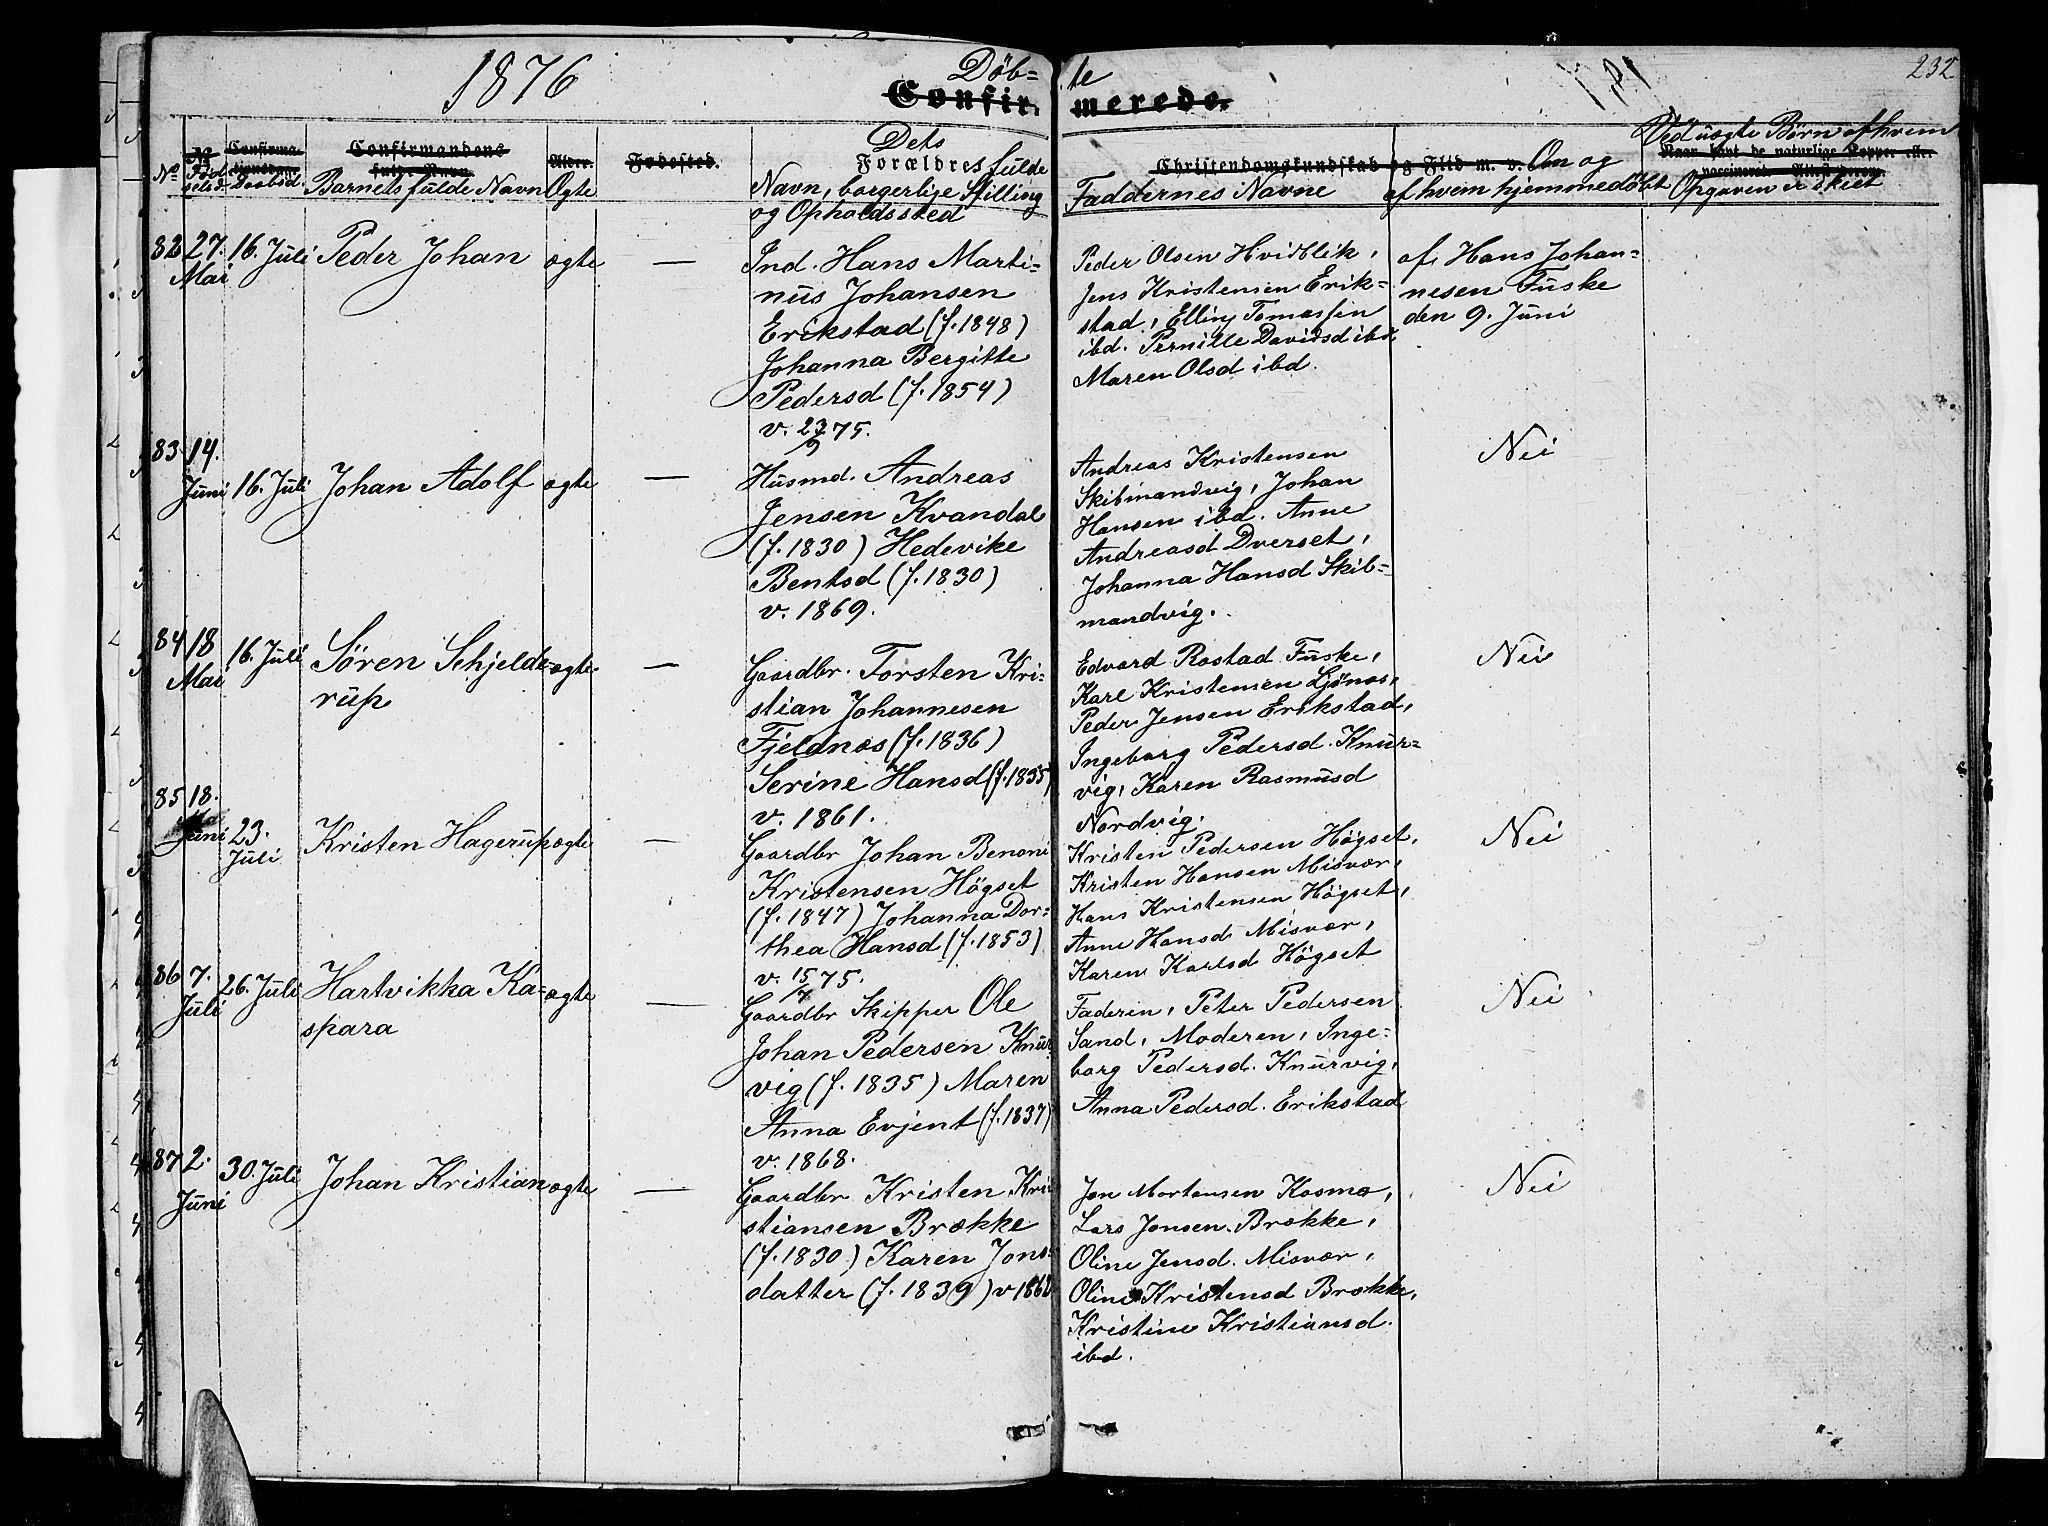 1876
Döb=
te
232
Confir-
merede.
No
No
Födselsd.
Confirma-
tionsdag.
Daabsd.
Confirmandens
fulde Navn.
Barnets fulde Navn
Alder.
Ægte
Fødested.
Dets
Forældres fulde
Navn, borgerlige Stilling
og Opholdssted
Christendomskundskab og Flid m. v. Om og
Faddernes Navne
af hvem hjemmedöbt
Ved uægte Börn af hvem
Naar havt de naturlige Kopper eller
vaccineret. Attest derom.
Opgaven er skeet
82 27. 16. Juli Peder Johan ægte —
Mai
Ind. Hans Marti-
nus Johansen
Erikstad (f. 1848)
Johanna Bergitte
Pedersd (f. 1854)
v. 23/9 75.
Peder Olsen Hvidblik,
Jens Kristensen Erik=
stad, Elling Tomassen
ibd. Pernille Davidsd ibd
Maren Olsd ibd.
af Hans Johan=
nesen Fuske
den 9. Juni
83 14.
Juni 16. Juli Johan Adolf ægte —
Husmd. Andreas
Jensen Kvandal
(f. 1830) Hedevike
Bentsd (f. 1830)
v. 1869.
Andreas Kristensen
Skibmandvig, Johan
Hansen ibd. Anne
Andreasd Dverset,
Johanna Hansd Skib=
mandvig.
Nei
84 18 16. Juli Sören Schjelde- ægte —
Mai
rup
Gaardbr. Torsten Kri-
stian Johannesen
Fjeldnæs (f. 1836)
Serine Hansd (f. 1835)
v. 1861.
Edvard Rostad Fuske,
Karl Kristensen Ljönæs,
Peder Jensen Erikstad,
Ingeborg Pedersd. Knur=
vig, Karen Rasmusd
Nordvig.
Nei
85 18.
Juni 23. Kristen Hagerup ægte —
Juli
Gaardbr Johan Benoni
Kristensen Högset
(f. 1847) Johanna Dor-
thea Hansd (f. 1853)
v. 15/7 75.
Kristen Pedersen Högset,
Kristen Hansen Misvær,
Hans Kristensen Högset,
Anne Hansd Misvær,
Karen Karlsd Högset
Nei
86 7. 26. Juli Hartvikka Ka- ægte —
Juli
spara
Gaardbr Skipper Ole
Johan Pedersen Knur
vig (f. 1835) Maren
Anna Evjent (f. 1837)
v. 1868.
Faderen, Peter Pedersen
Sand, Moderen, Inge=
borg Pedersd. Knurvig,
Anna Pedersd. Erikstad
Nei
87 2. 30. Juli Johan Kristian ægte —
Juni
Gaardbr Kristen Kri-
stiansen Brække
(f. 1830) Karen Jons-
datter (f. 1839) v 1862
Jon Mortensen Kosmo,
Lars Jonsen Brække,
Oline Jensd. Misvær,
Oline Kristensd Brække,
Kristine Kristiansd.
ibd.
Nei